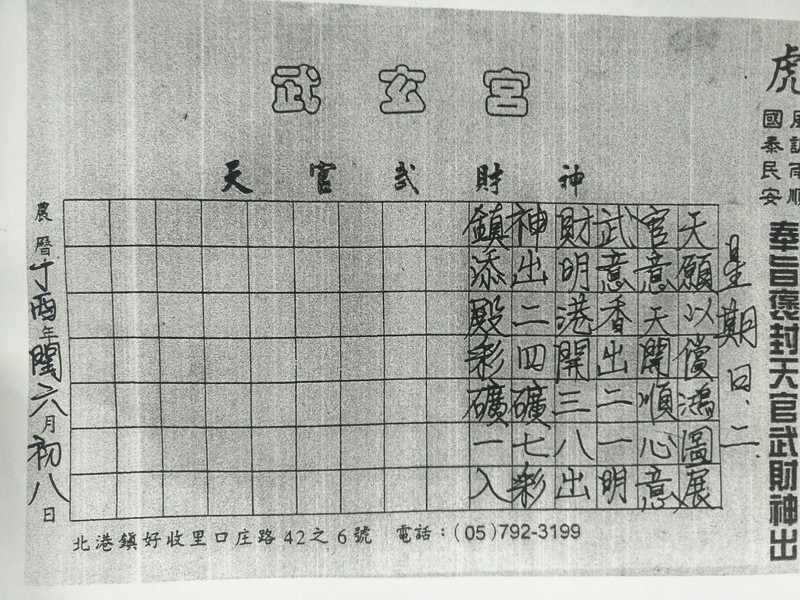 武玄宮
天官武財神
星期日、二
天願以償鴻圖展
官意天開順心意
武意香出二一明
財明港開三八出
神出二四礦七彩
鎮添殿彩礦一入
農曆丁酉年閏六月初八日
北港鎮好收里口庄路42之6號 電話：(05)792-3199
虎
風調雨順
國泰民安
奉旨褒封天官武財神出